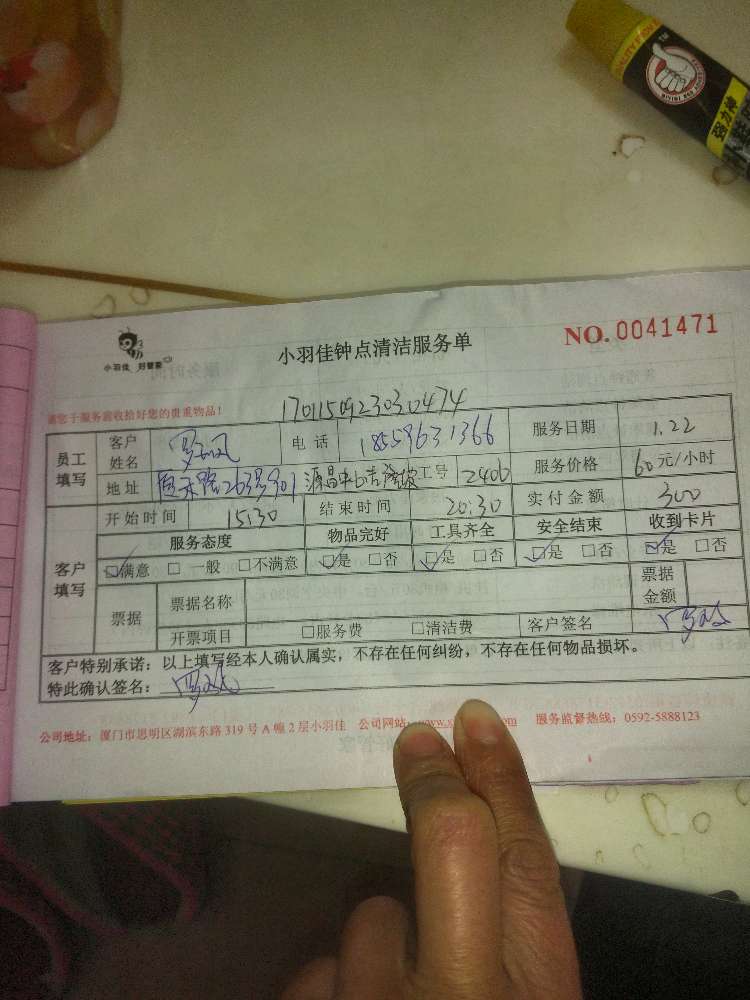 强力神
小羽佳 好管家
小羽佳钟点清洁服务单
NO. 0041471
请您于服务前收拾好您的贵重物品！
17011509230300474
员工填写 客户姓名 罗 电话 18559631366 服务日期 1.22
地址 263号901 源昌 工号 2406 服务价格 60元/小时
客户填写 开始时间 15:30 结束时间 20:30 实付金额 300
服务态度 物品完好 工具齐全 安全结束 收到卡片
☑满意 □一般 □不满意 ☑是 □否 ☑是 □否 ☑是 □否 ☑是 □否
票据 票据名称 票据金额
开票项目 □服务费 □清洁费 客户签名 罗
客户特别承诺：以上填写经本人确认属实，不存在任何纠纷，不存在任何物品损坏。
特此确认签名：罗
公司地址：厦门市思明区湖滨东路319号A幢2层小羽佳 公司网站： 服务监督热线：0592-5888123